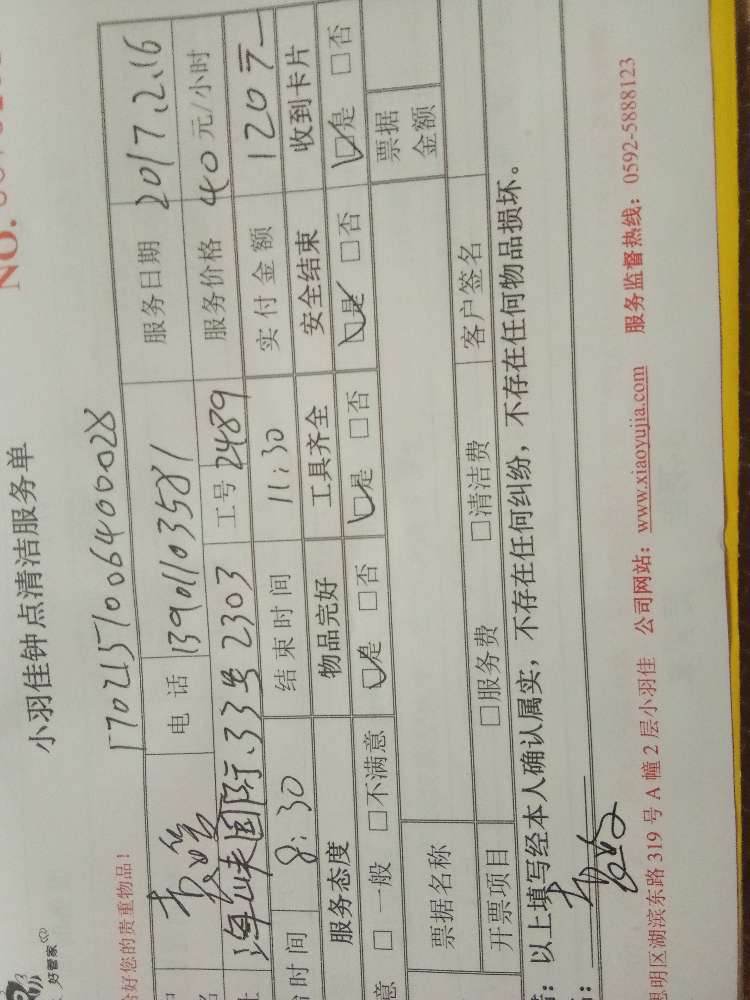 NO.
小羽佳钟点清洁服务单
好管家
1702151006400028
好您的贵重物品!
电 话 13901103581 服务日期 2017.2.16
服务价格 40元/小时
海峡国际33号2303 工号 2489 实付金额 120元
时间 8:30 结束时间 11:30
服务态度 物品完好 工具齐全 安全结束 收到卡片
意 □一般 □不满意 ☑是 □否 ☑是 □否 ☑是 □否 ☑是 □否
票据名称 票据金额
开票项目 □服务费 □清洁费 客户签名
: 以上填写经本人确认属实,不存在任何纠纷,不存在任何物品损坏。
明区湖滨东路 319 号 A 幢 2 层小羽佳 公司网站: www.xiaoyujia.com 服务监督热线: 0592-5888123